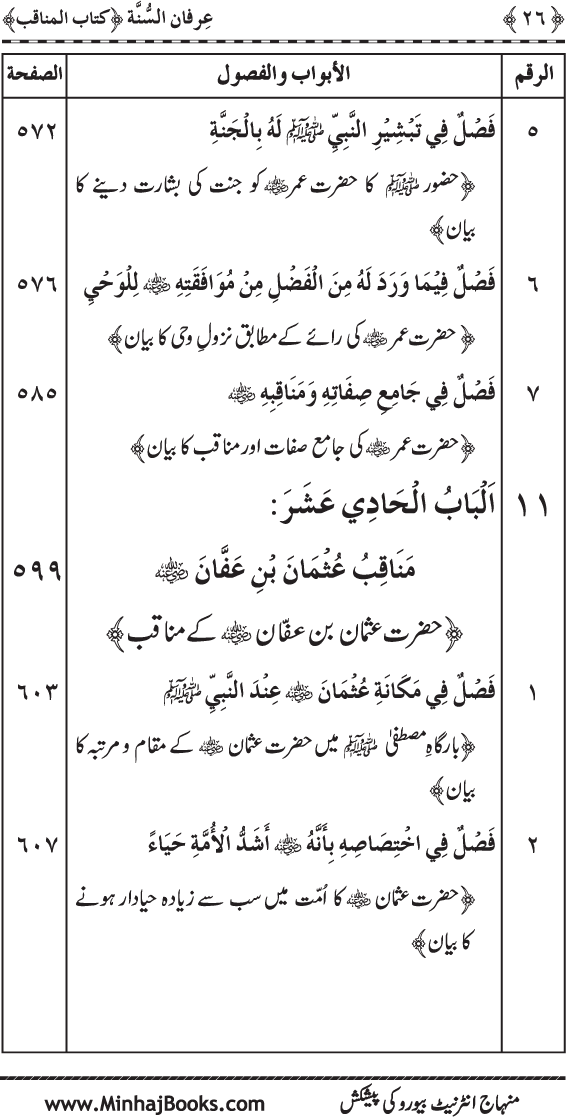 ﴿٢٦﴾ عِرفان السُّنَّة ﴿كتاب المناقب﴾
الرقم الأبواب والفصول الصفحة
٥ فَصْلٌ فِي تَبْشِيْرِ النَّبِيِّ ﷺ لَهُ بِالْجَنَّةِ ٥٧٢
﴿حضور ﷺ کا حضرت عمر رضي الله عنه کو جنت کی بشارت دینے کا
بیان﴾
٦ فَصْلٌ فِيْمَا وَرَدَ لَهُ مِنَ الْفَضْلِ مِنْ مُوَافَقَتِهِ رضي الله عنه لِلْوَحْيِ ٥٧٦
﴿حضرت عمر رضي الله عنه کی رائے کے مطابق نزولِ وحی کا بیان﴾
٧ فَصْلٌ فِي جَامِعِ صِفَاتِهِ وَمَنَاقِبِهِ رضي الله عنه ٥٨٥
﴿حضرت عمر رضي الله عنه کی جامع صفات اور مناقب کا بیان﴾
١١ اَلْبَابُ الْحَادِي عَشَرَ:
مَنَاقِبُ عُثْمَانَ بْنِ عَفَّانَ رضي الله عنه ٥٩٩
﴿حضرت عثمان بن عفّان رضي الله عنه کے مناقب﴾
١ فَصْلٌ فِي مَكَانَةِ عُثْمَانَ رضي الله عنه عِنْدَ النَّبِيِّ ﷺ ٦٠٣
﴿بارگاہِ مصطفیٰ ﷺ میں حضرت عثمان رضي الله عنه کے مقام و مرتبہ کا
بیان﴾
٢ فَصْلٌ فِي اخْتِصَاصِهِ بِأَنَّهُ رضي الله عنه أَشَدُّ الْأُمَّةِ حَيَاءً ٦٠٧
﴿حضرت عثمان رضي الله عنه کا اُمّت میں سب سے زیادہ حیادار ہونے
کا بیان﴾
منہاج انٹرنیٹ بیورو کی پیشکش www.MinhajBooks.com